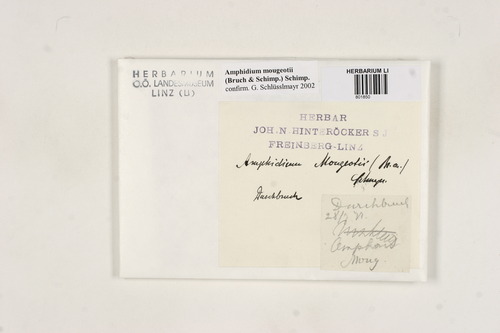 HERBARIUM
O.Ö. LANDESMUSEUM
LINZ (LI)
Amphidium mougeotii
(Bruch & Schimp.) Schimp.
confirm. G. Schlüsslmayr 2002
HERBARIUM LI
HERBAR
JOH. N. HINTERÖCKER S.J.
FREINBERG-LINZ
Amphidium Mougeotii (B. a.)
Schmpr.
Durchbruch
Durchbruch
Amphid
Moug.